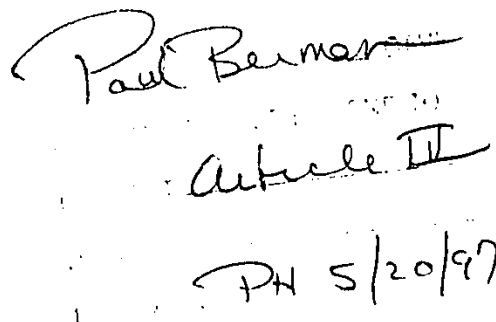 Paul Berman
Article III
PH 5/20/97